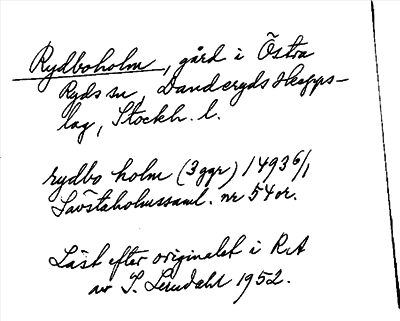 Rydboholm, gård i Östra
Ryds sn, Danderyds skepps-
lag, Stockh. l.
rydbo holm (3 ggr) 1493 6/1
Sävstaholmssaml. nr 54 or.
Läst efter originalet i RA
av S. Lerudahl 1952.